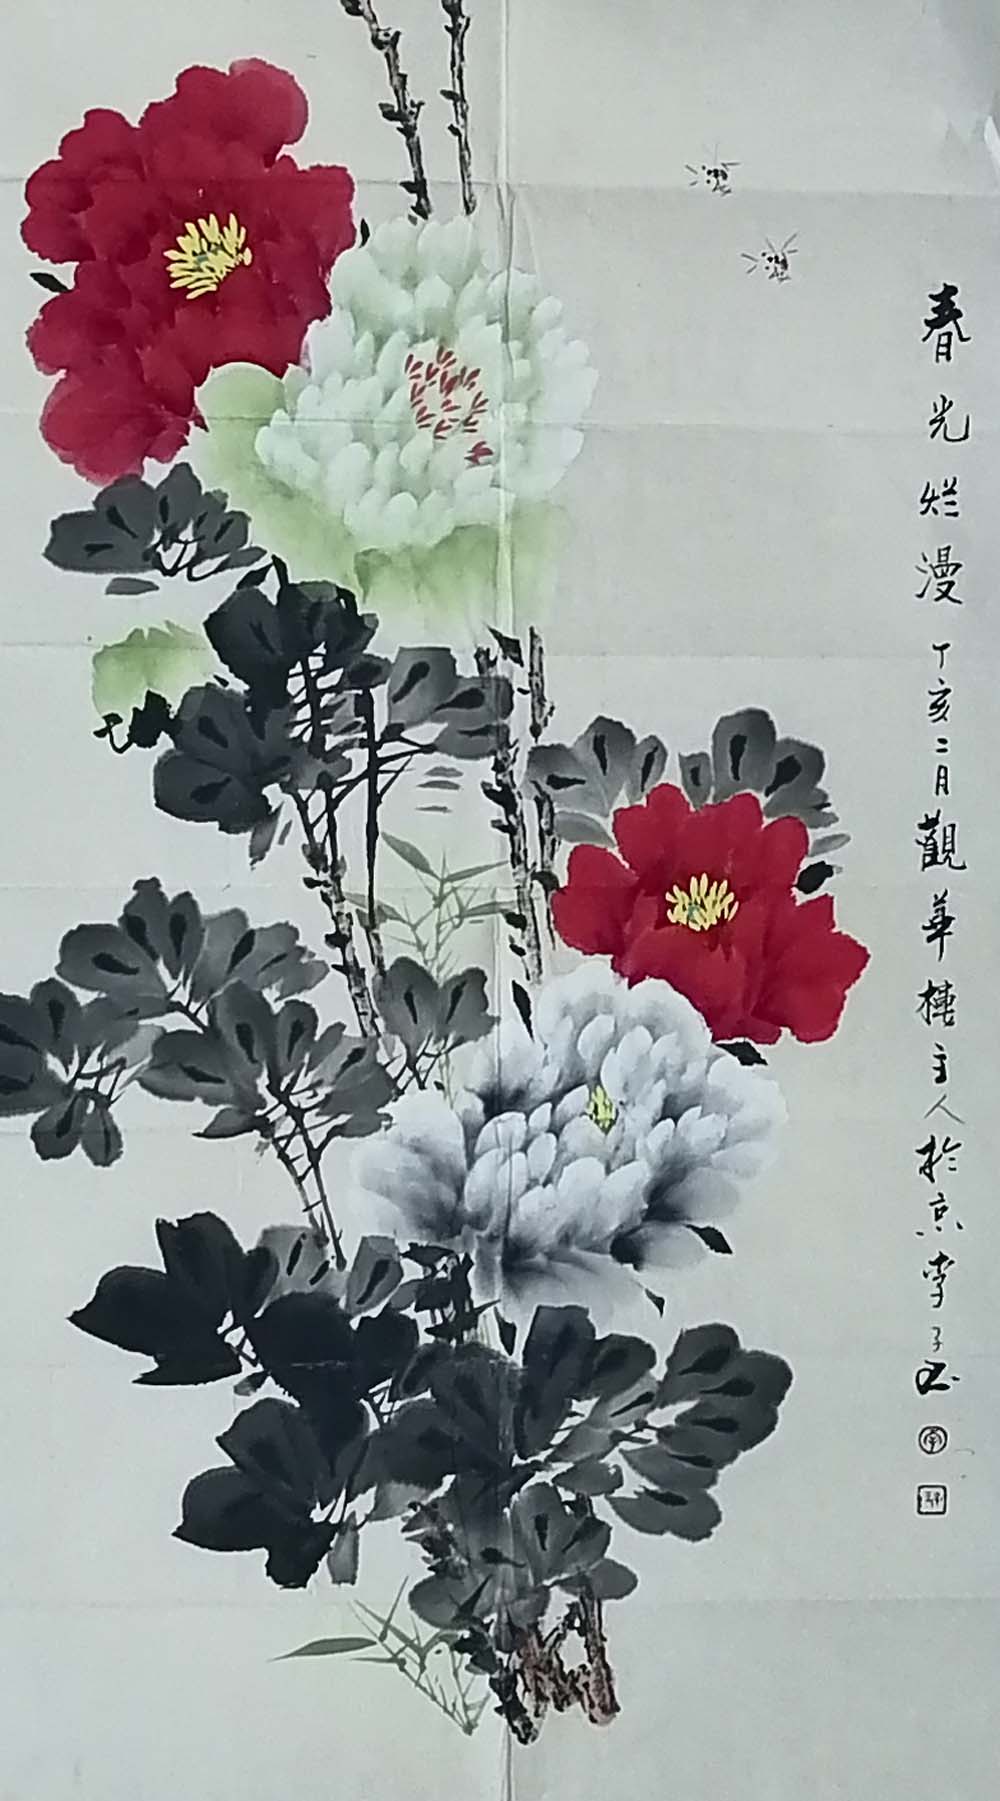 春光烂漫丁亥二月觀華樓主人於京李子